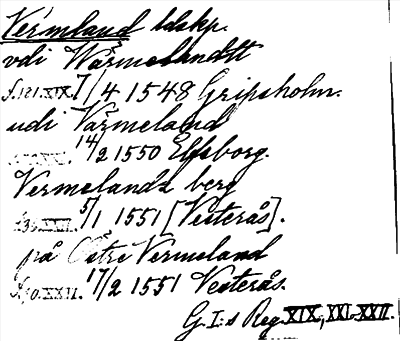 Vermland ldskp.
vdi Wärmelandtt
f.121.XIX. 7/4 1548 Gripsholm.
udi Värmeland
14/2 1550 Elfsborg.
Vermelandz berg
XXII. 5/1 1551 [Vesterås].
på Östre Vermeland
XXII. 17/2 1551 Vesterås.
G. I:s Reg. XIX, XXI-XXII.